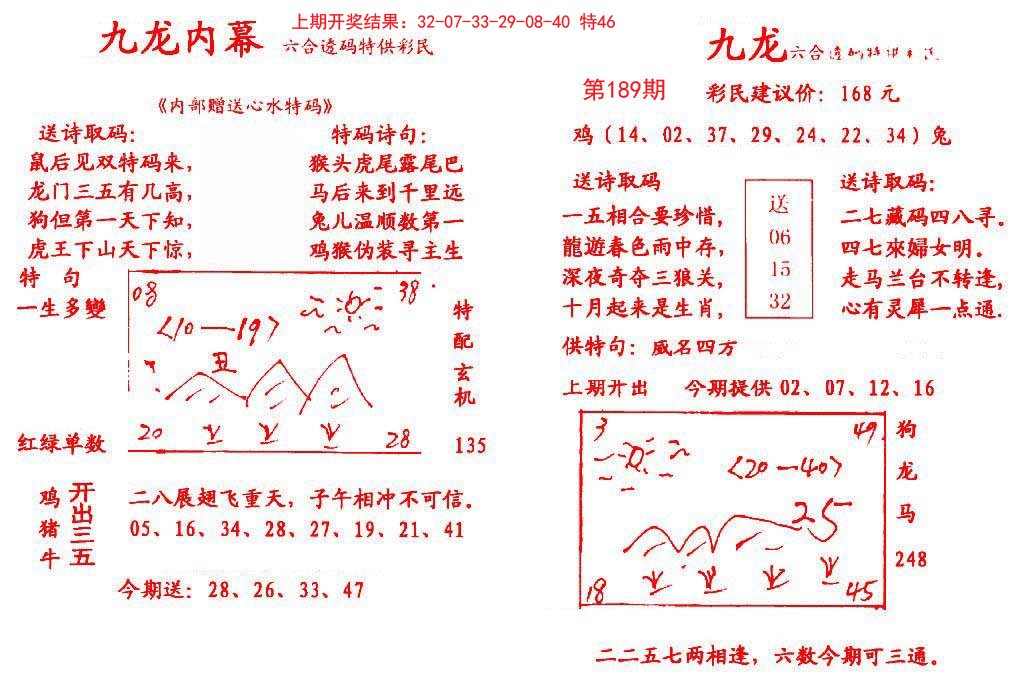 上期开奖结果：32-07-33-29-08-40 特46
九龙内幕
六合透码特供彩民
《内部赠送心水特码》
送诗取码：
鼠后见双特码来，
龙门三五有几高，
狗但第一天下知，
虎王下山天下惊，
特码诗句：
猴头虎尾露尾巴
马后来到千里远
兔儿温顺数第一
鸡猴伪装寻主生
特 句
一生多變
红绿单数
08
38
<10—19>
丑
20
28
特配玄机
135
鸡猪牛
开出三五
二八展翅飞重天，子午相冲不可信。
05、16、34、28、27、19、21、41
今期送：28、26、33、47
九龙
六合透码特供
第189期
彩民建议价：168 元
鸡（14、02、37、29、24、22、34）兔
送诗取码
一五相合要珍惜，
龍遊春色雨中存，
深夜奇夺三狼关，
十月起来是生肖，
送
06
15
32
送诗取码：
二七藏码四八寻。
四七來婦女明。
走马兰台不转逢，
心有灵犀一点通.
供特句：威名四方
上期开出 今期提供 02、07、12、16
3
49
<20—40>
25
18
45
狗
龙
马
248
二二五七两相逢，六数今期可三通。